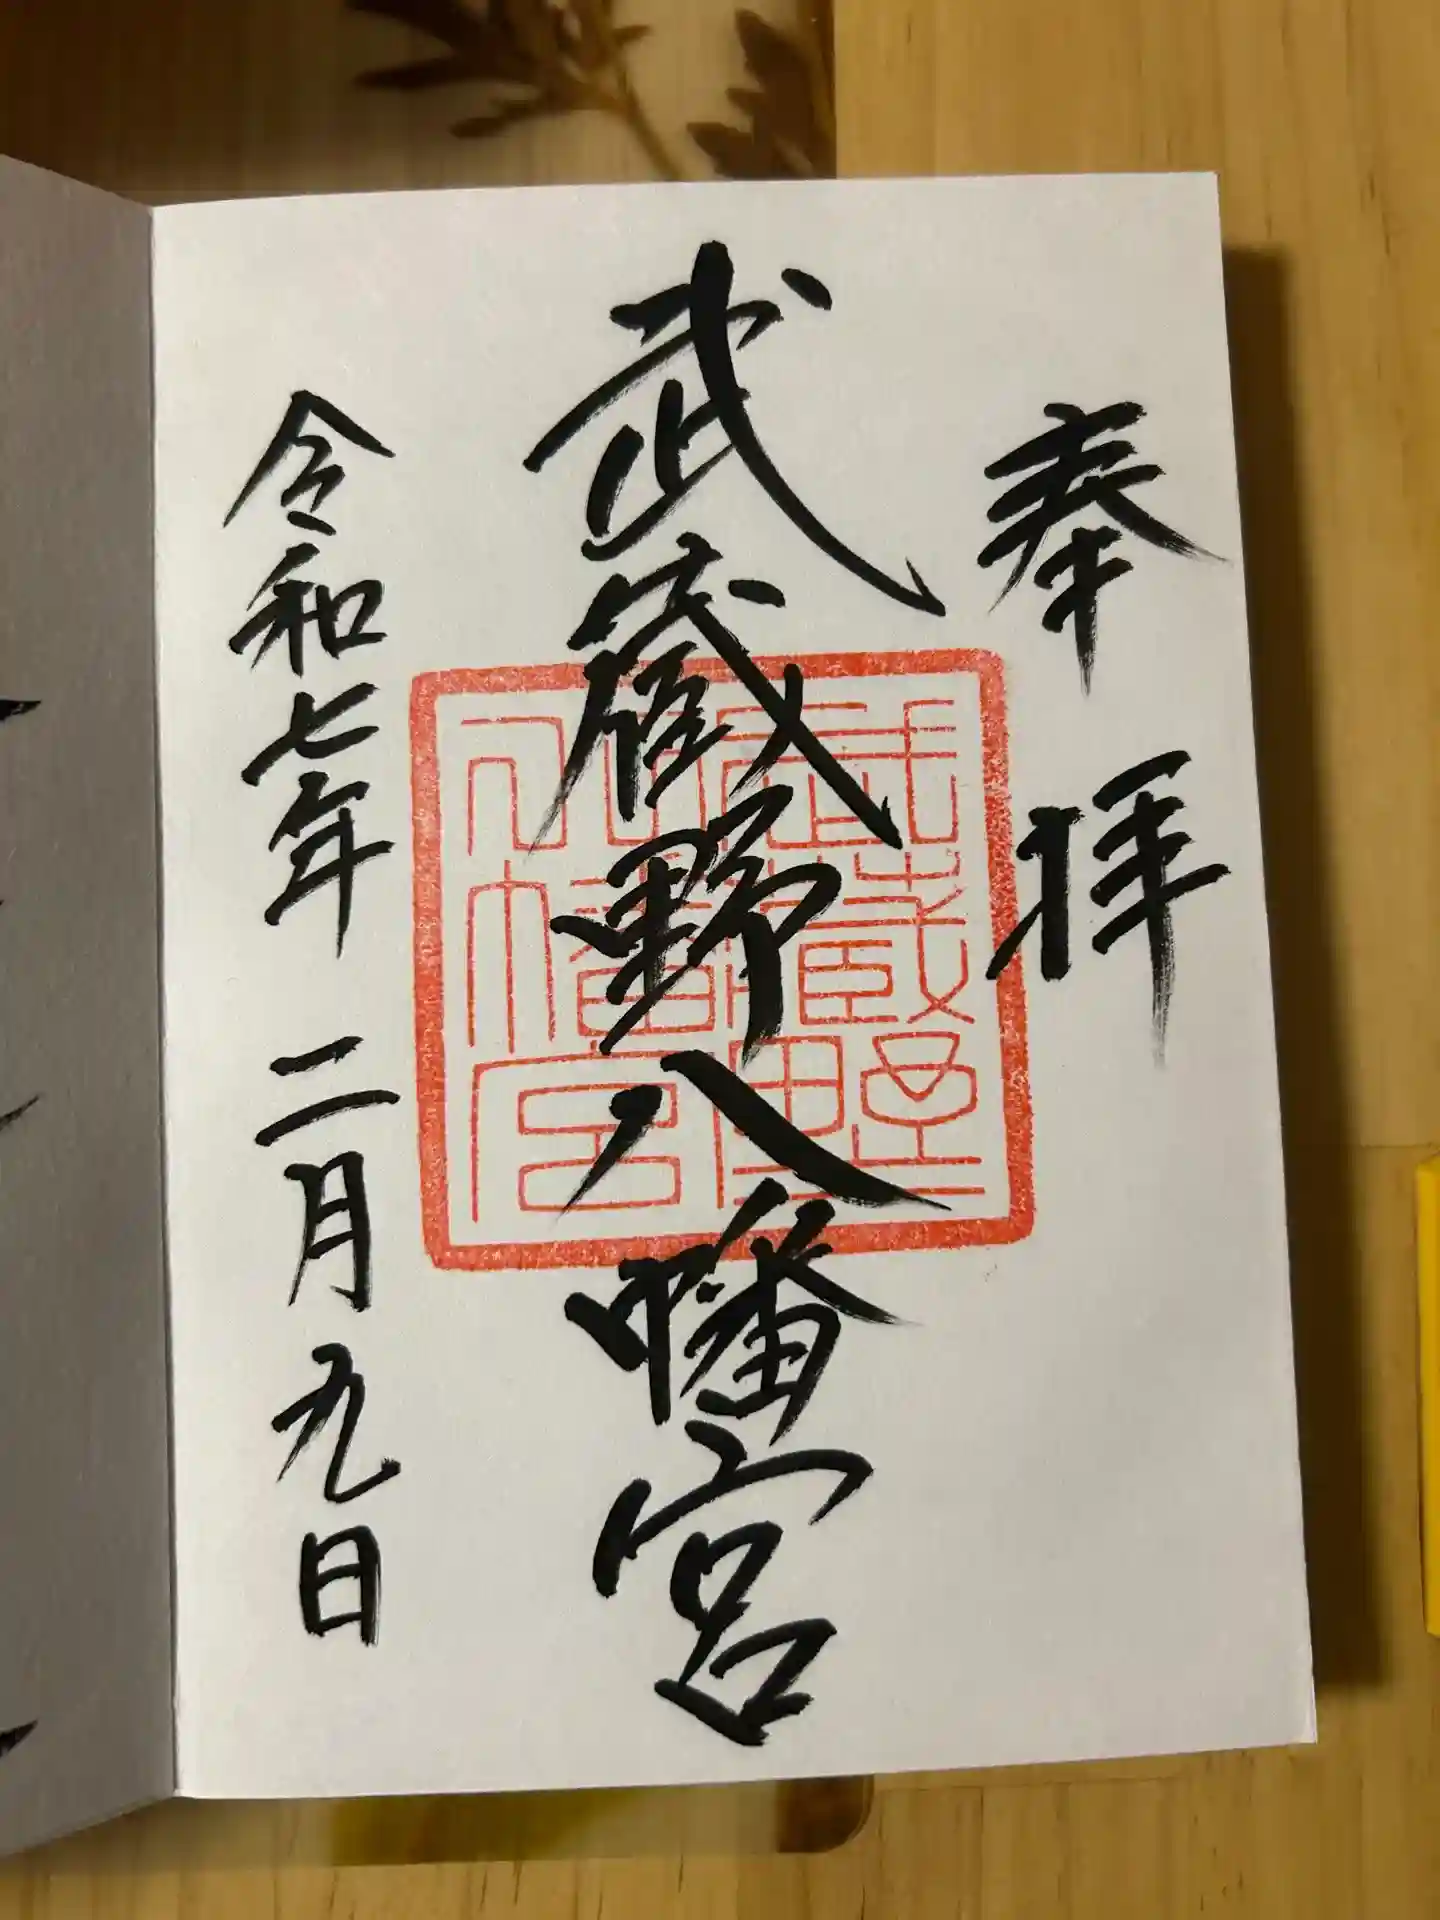 奉拝
武蔵野八幡宮
武蔵野
八幡宮
令和七年 二月九日